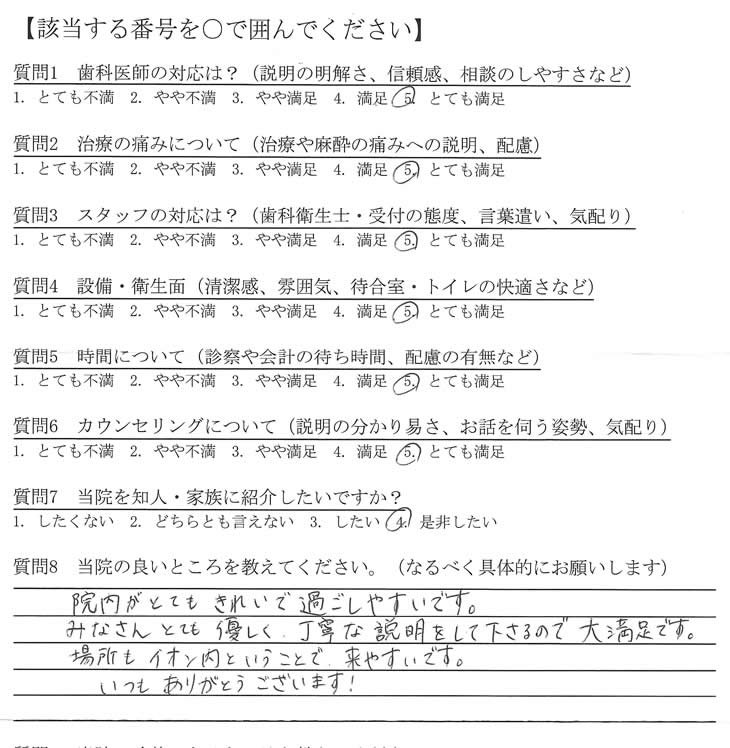 【該当する番号を〇で囲んでください】
質問1　歯科医師の対応は？（説明の明解さ、信頼感、相談のしやすさなど）
1. とても不満　2. やや不満　3. やや満足　4. 満足　5. とても満足
質問2　治療の痛みについて（治療や麻酔の痛みへの説明、配慮）
1. とても不満　2. やや不満　3. やや満足　4. 満足　5. とても満足
質問3　スタッフの対応は？（歯科衛生士・受付の態度、言葉遣い、気配り）
1. とても不満　2. やや不満　3. やや満足　4. 満足　5. とても満足
質問4　設備・衛生面（清潔感、雰囲気、待合室・トイレの快適さなど）
1. とても不満　2. やや不満　3. やや満足　4. 満足　5. とても満足
質問5　時間について（診察や会計の待ち時間、配慮の有無など）
1. とても不満　2. やや不満　3. やや満足　4. 満足　5. とても満足
質問6　カウンセリングについて（説明の分かり易さ、お話を伺う姿勢、気配り）
1. とても不満　2. やや不満　3. やや満足　4. 満足　5. とても満足
質問7　当院を知人・家族に紹介したいですか？
1. したくない　2. どちらとも言えない　3. したい　4. 是非したい
質問8　当院の良いところを教えてください。（なるべく具体的にお願いします）
院内がとてもきれいで過ごしやすいです。
みなさんとても優しく、丁寧な説明をして下さるので大満足です。
場所もイオン内ということで、来やすいです。
いつもありがとうございます！